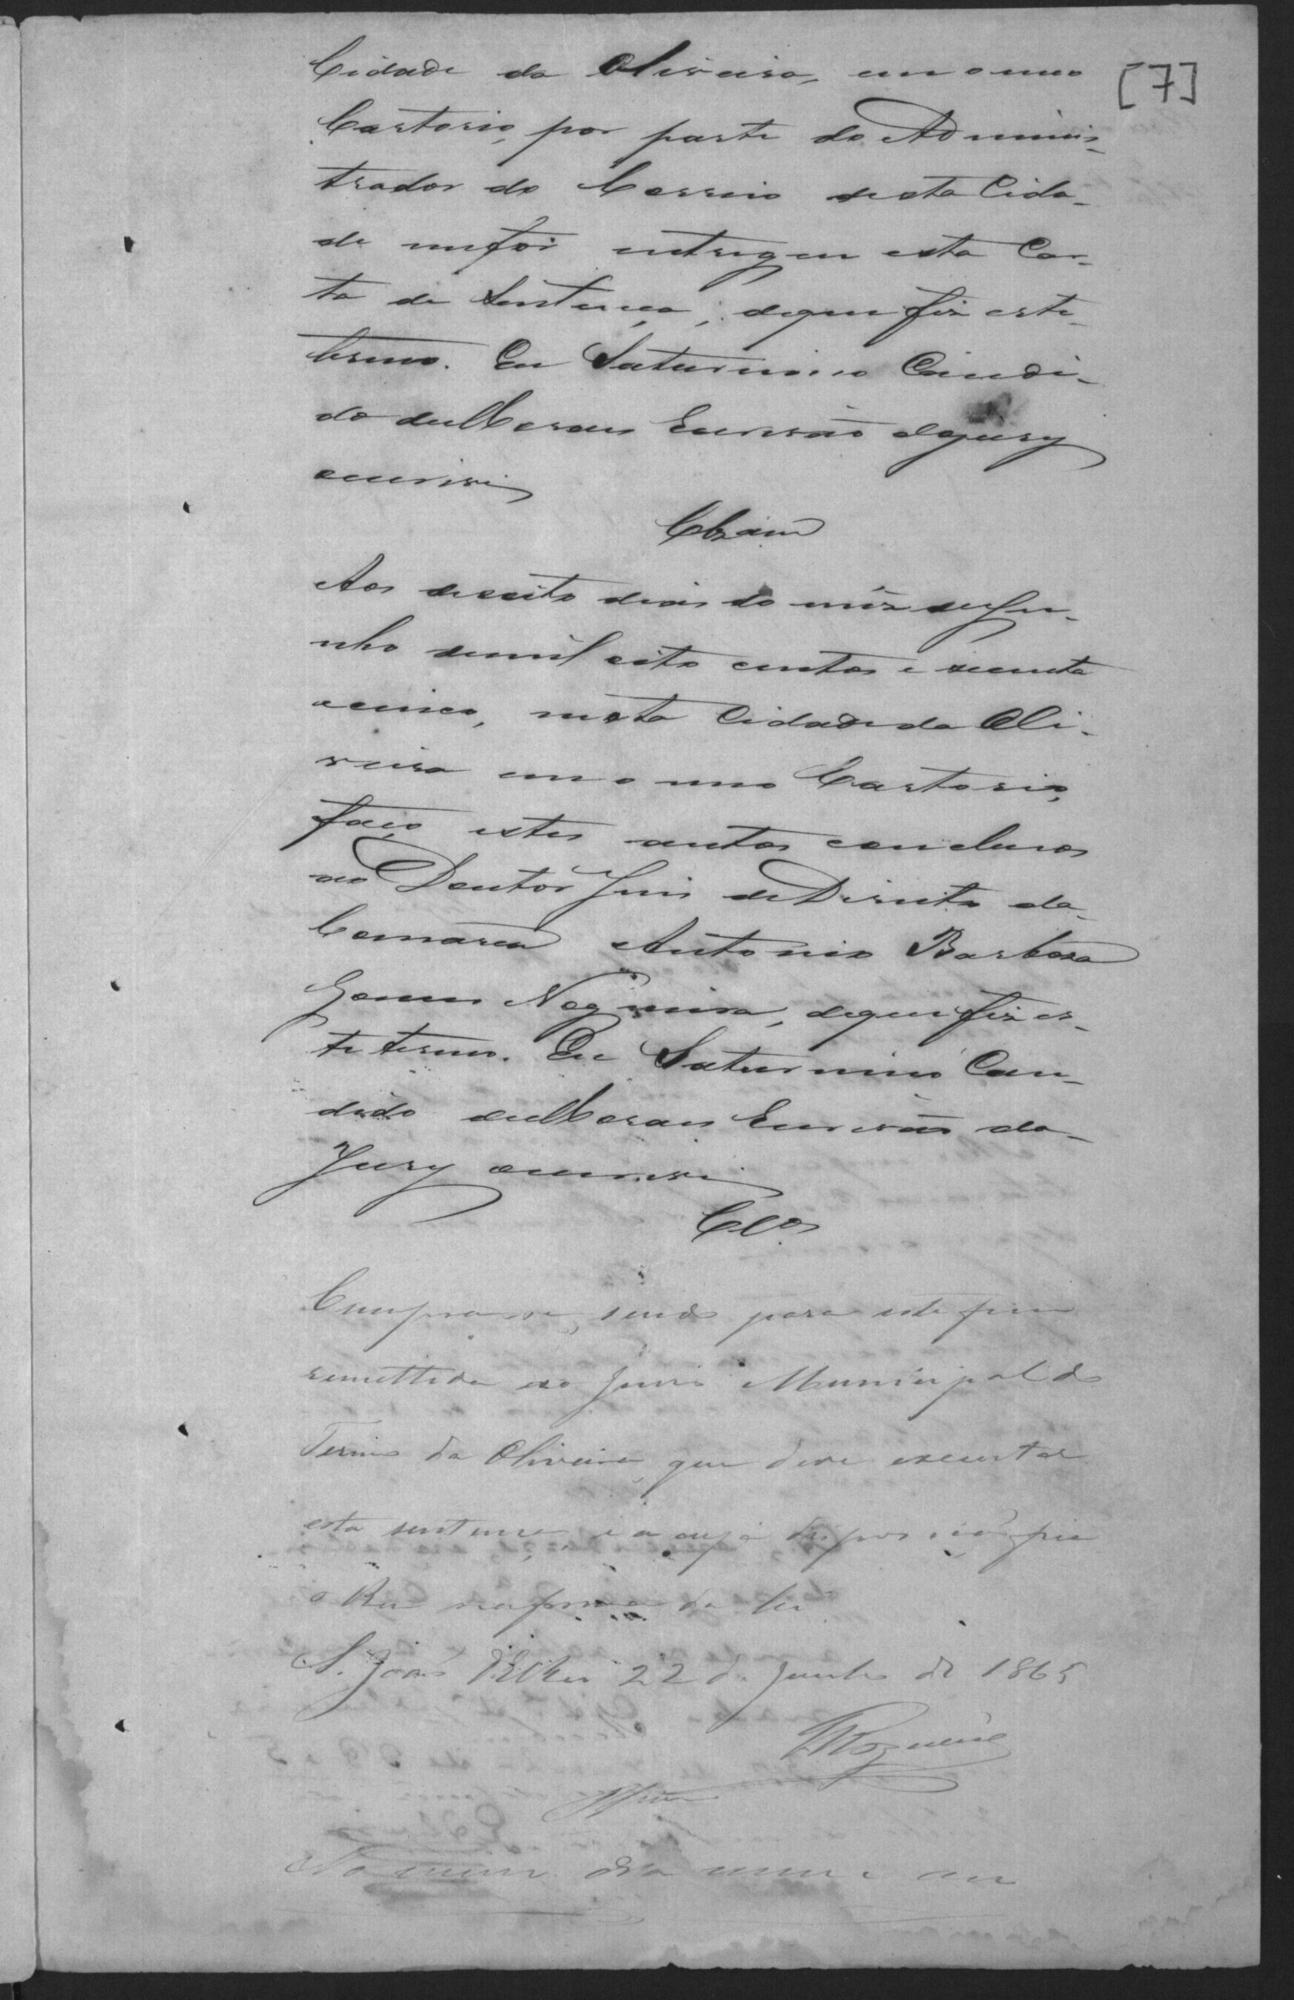 [7]
Cidade da Oliveira, em o meo
Cartorio, por parte do Adminis-
trador do Correio desta Cida-
de me foi entregue esta Car-
ta de Sentença; de que fiz este
termo. Eu Saturnino Candi-
do de Moraes Escrivão do Jury
escrevi
Clzam
Aos desoito dias do mês de Ju-
nho de mil oito centos e secenta
e cinco, nesta Cidade da Oli-
veira em o meo Cartorio,
faço estes autos conclusos
ao Doutor Juis de Direito da
Comarca Antonio Barbosa
Gomes Nogueira, de que fiz es-
te termo. Eu Saturnino Can-
dido de Moraes Escrivão do
Jury escrevi
Clos
Cumpra-se, sendo para este fim
remettida ao Juiso Municipal do
Termo da Oliveira que deve executar
esta sentença, e a cuja disposição fica
o Reu na forma da lei
S. João d'El Rei 22 de Junho de 1865
Nogueira
No mesmo dia mes e an